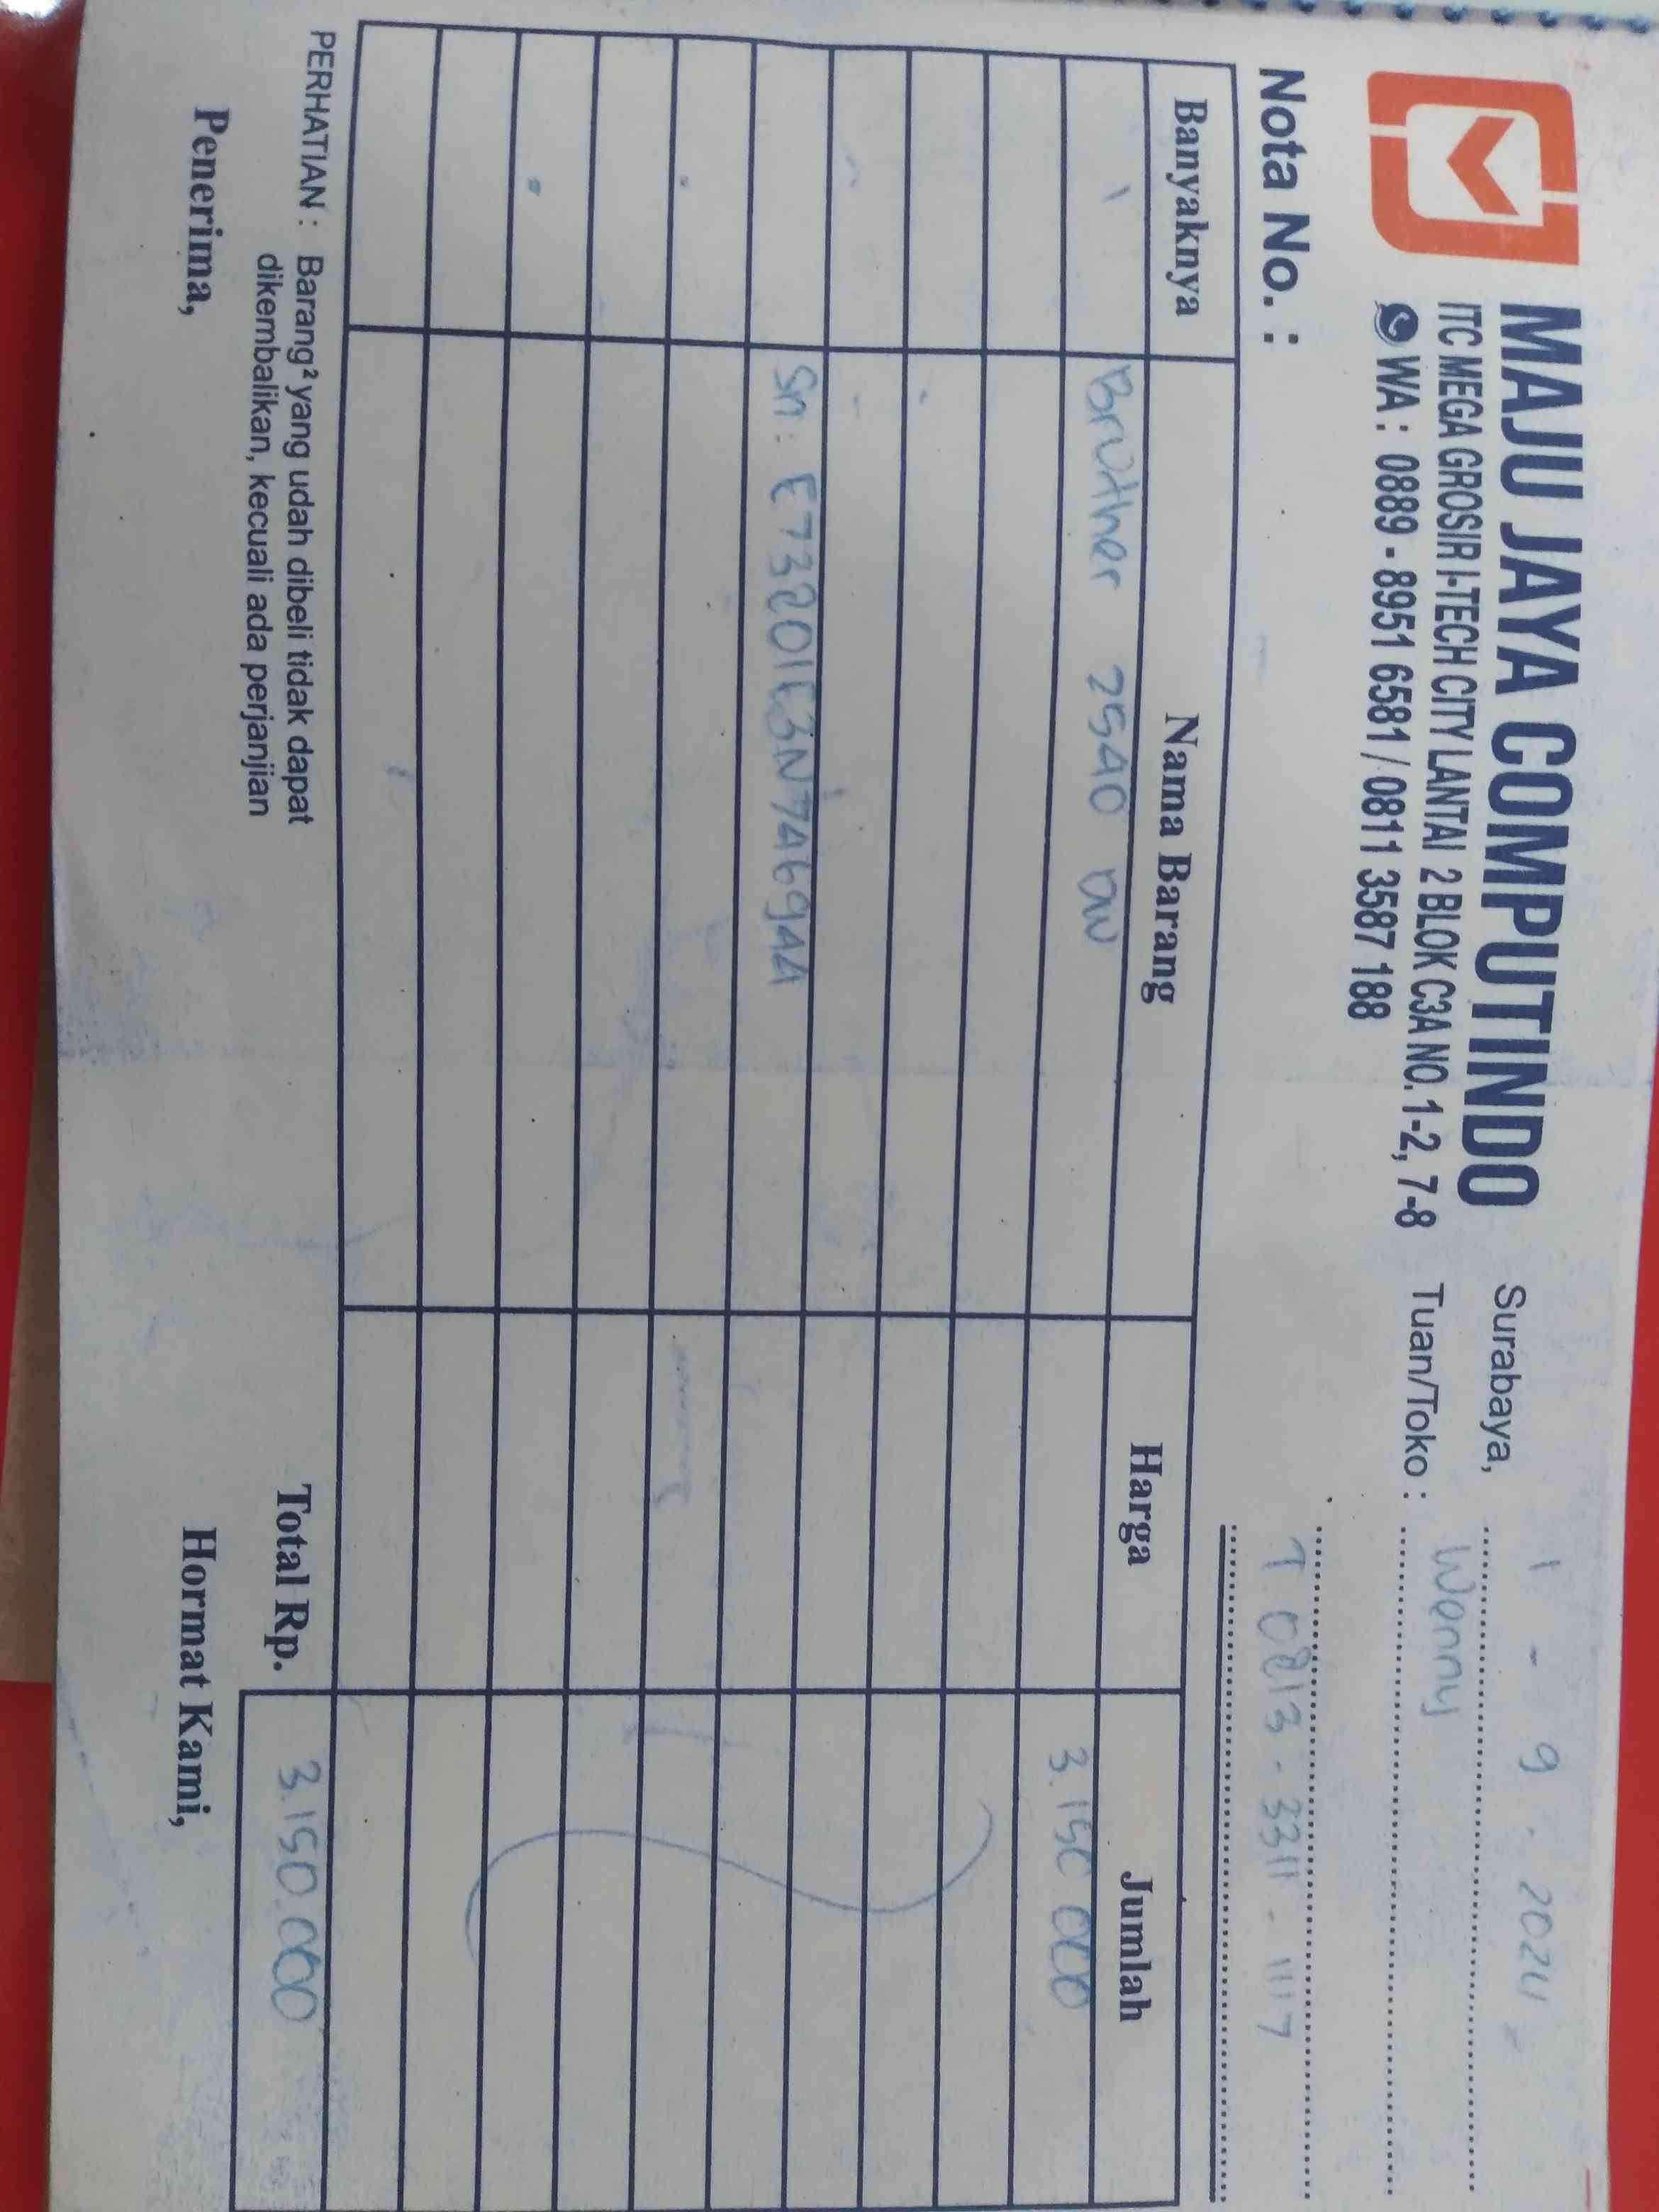 MAJU JAYA COMPUTINDO
ITC MEGA GROSIR I-TECH CITY LANTAI 2 BLOK C3A NO. 1-2, 7-8
WA : 0889 - 8951 6581 / 0811 3587 188
Surabaya, 1 - 9 - 2024
Tuan/Toko : Wenny
T 0813 - 3311 - 1117
Nota No. :
Banyaknya Nama Barang Harga Jumlah
1 Brother 2540 DW 3.150.000
Sn : E73201E3N746944
Total Rp. 3.150.000
PERHATIAN : Barang² yang udah dibeli tidak dapat
dikembalikan, kecuali ada perjanjian
Penerima, Hormat Kami,